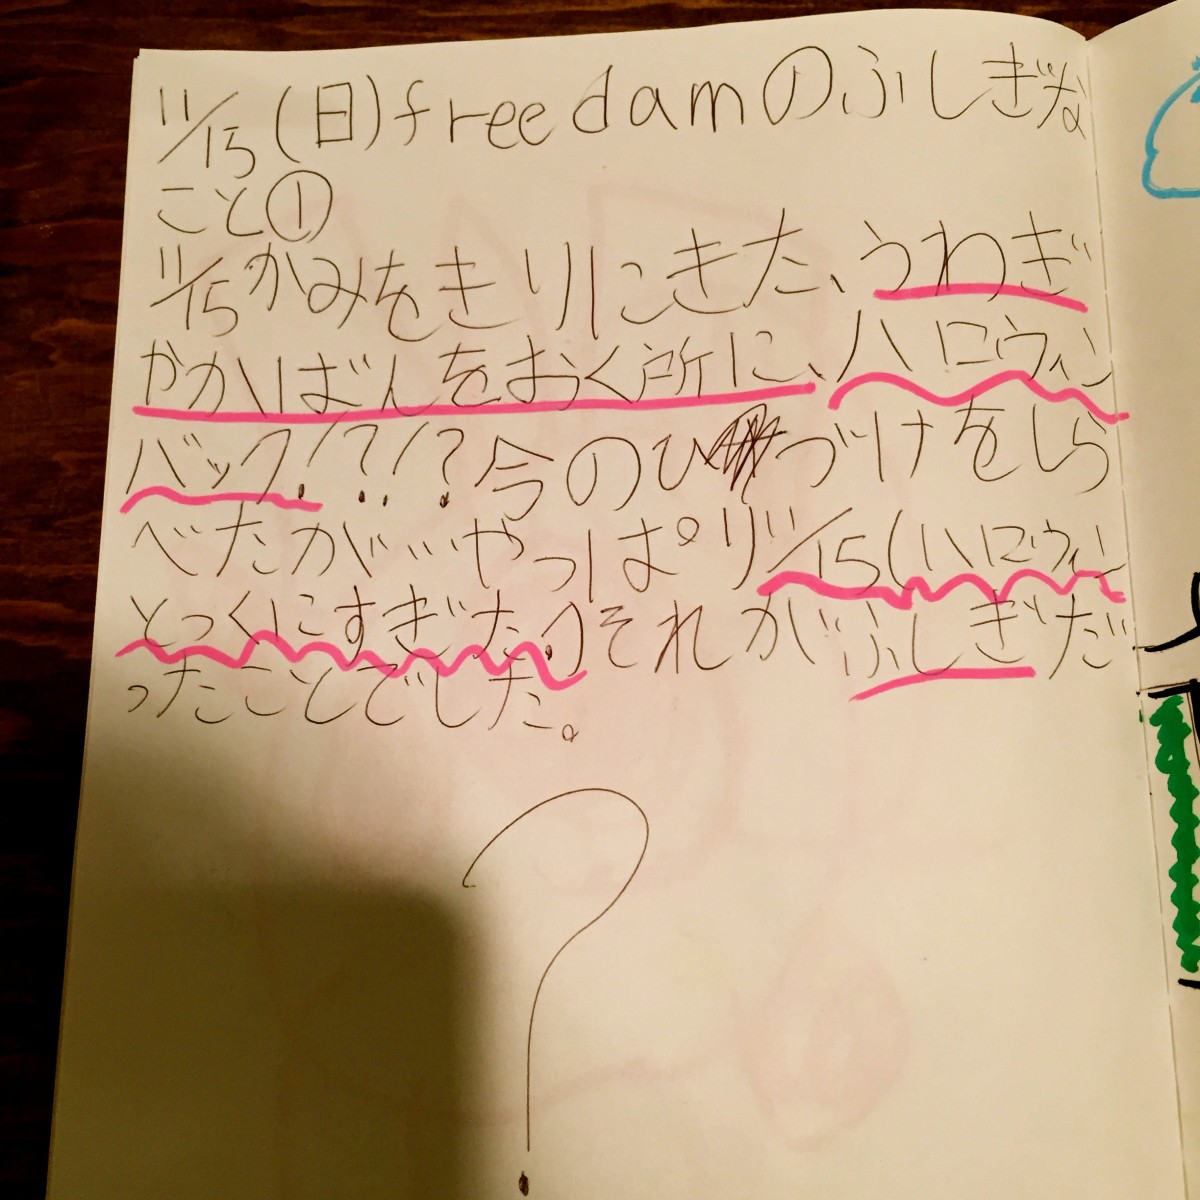 11/15(日)freedamのふしぎな
こと①
11/15かみをきりにきた、うわぎ
やかばんをおく所に、ハロウィン
バック!?!?今のひづけをしら
べたが…やっぱり11/15(ハロウィン
とっくにすぎた。)それがふしぎだ
ったことでした。
?